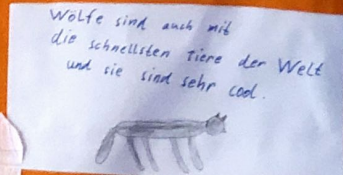 Wölfe sind auch mit
die schnellsten Tiere der Welt
und sie sind sehr cool.